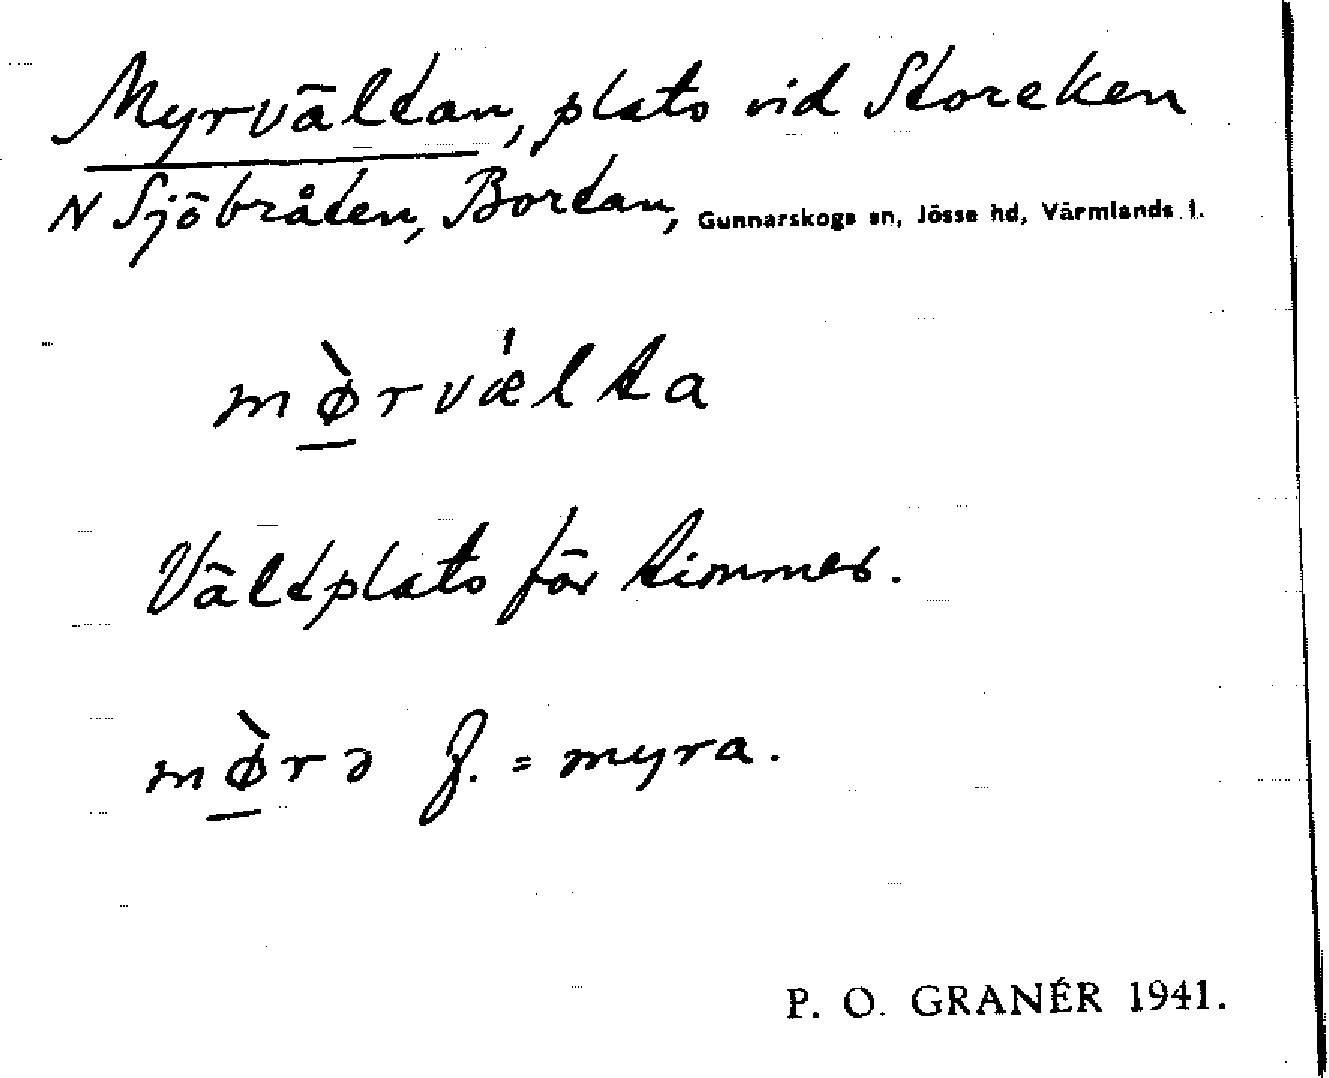 Myrvältan, plats vid Storeken
N Sjöbråten, Bortan, Gunnarskogs sn, Jösse hd, Värmlands l.
mø̲̀rvæ̍lta
Vältplats för timmer.
mø̲̀rə f. = myra.
P. O. GRANÉR 1941.